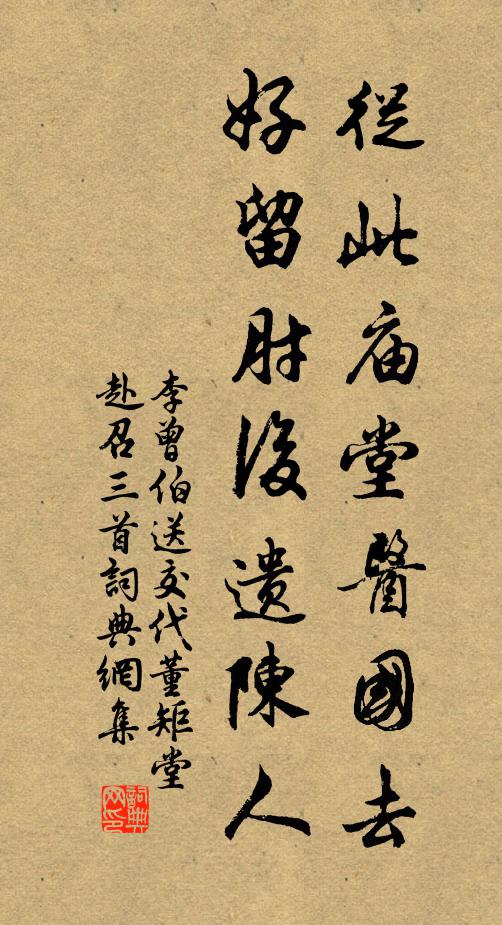 從此庙堂醫國去
好留肘後遺陳人
李曾伯送交代董矩堂
赴召三首詞典網集
詞典網印